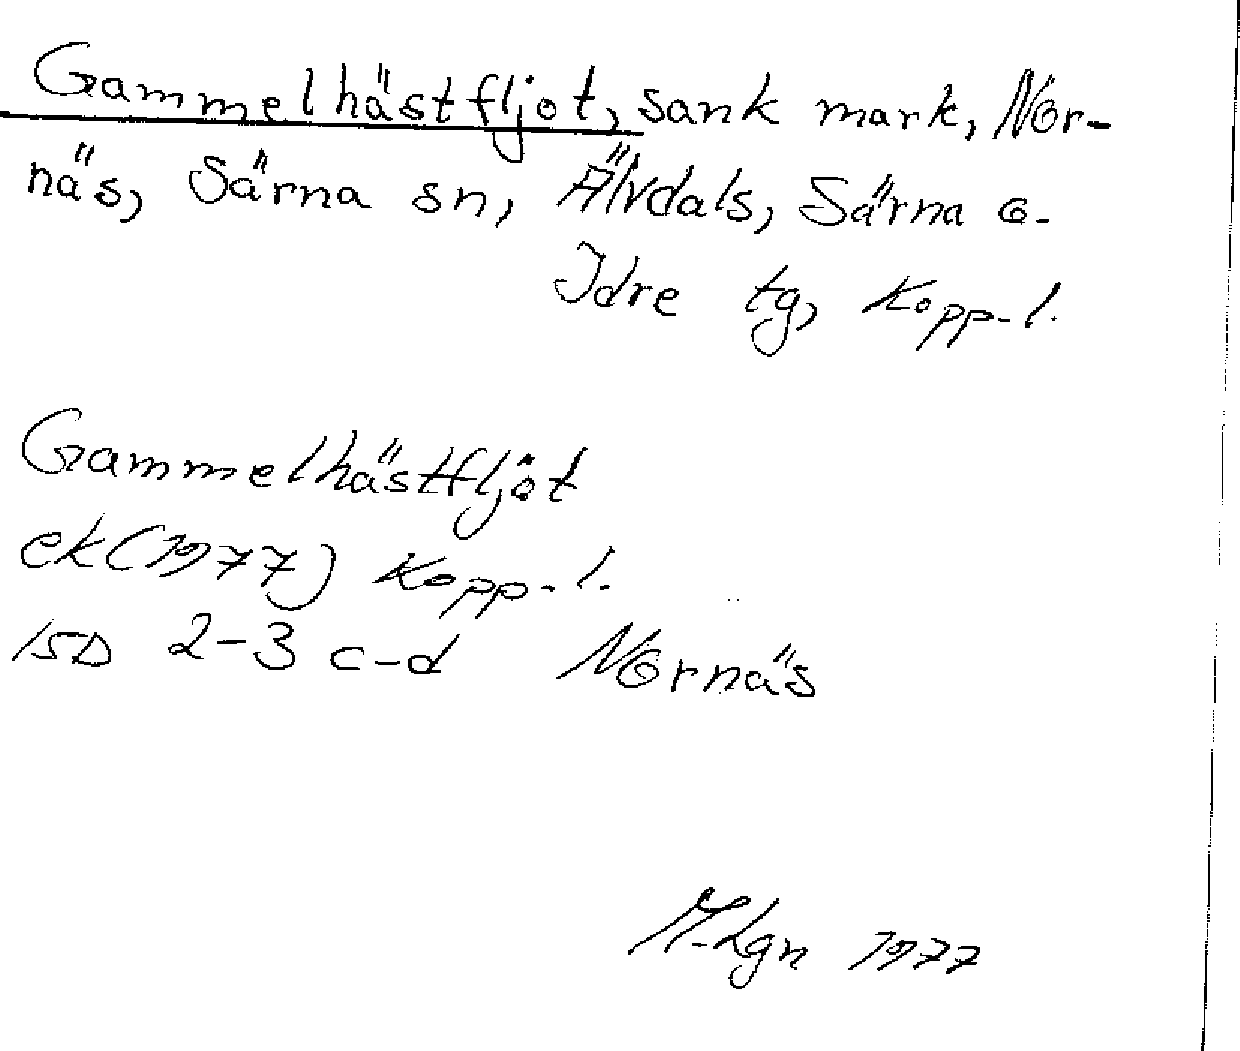 Gammelhästfljot, sank mark, Nor-
näs, Särna sn, Älvdals, Särna o.
Idre tg, Kopp-l.
Gammelhästfljot
ek(1977) Kopp-l.
15D 2-3 c-d Nornäs
M-Lgn 1977